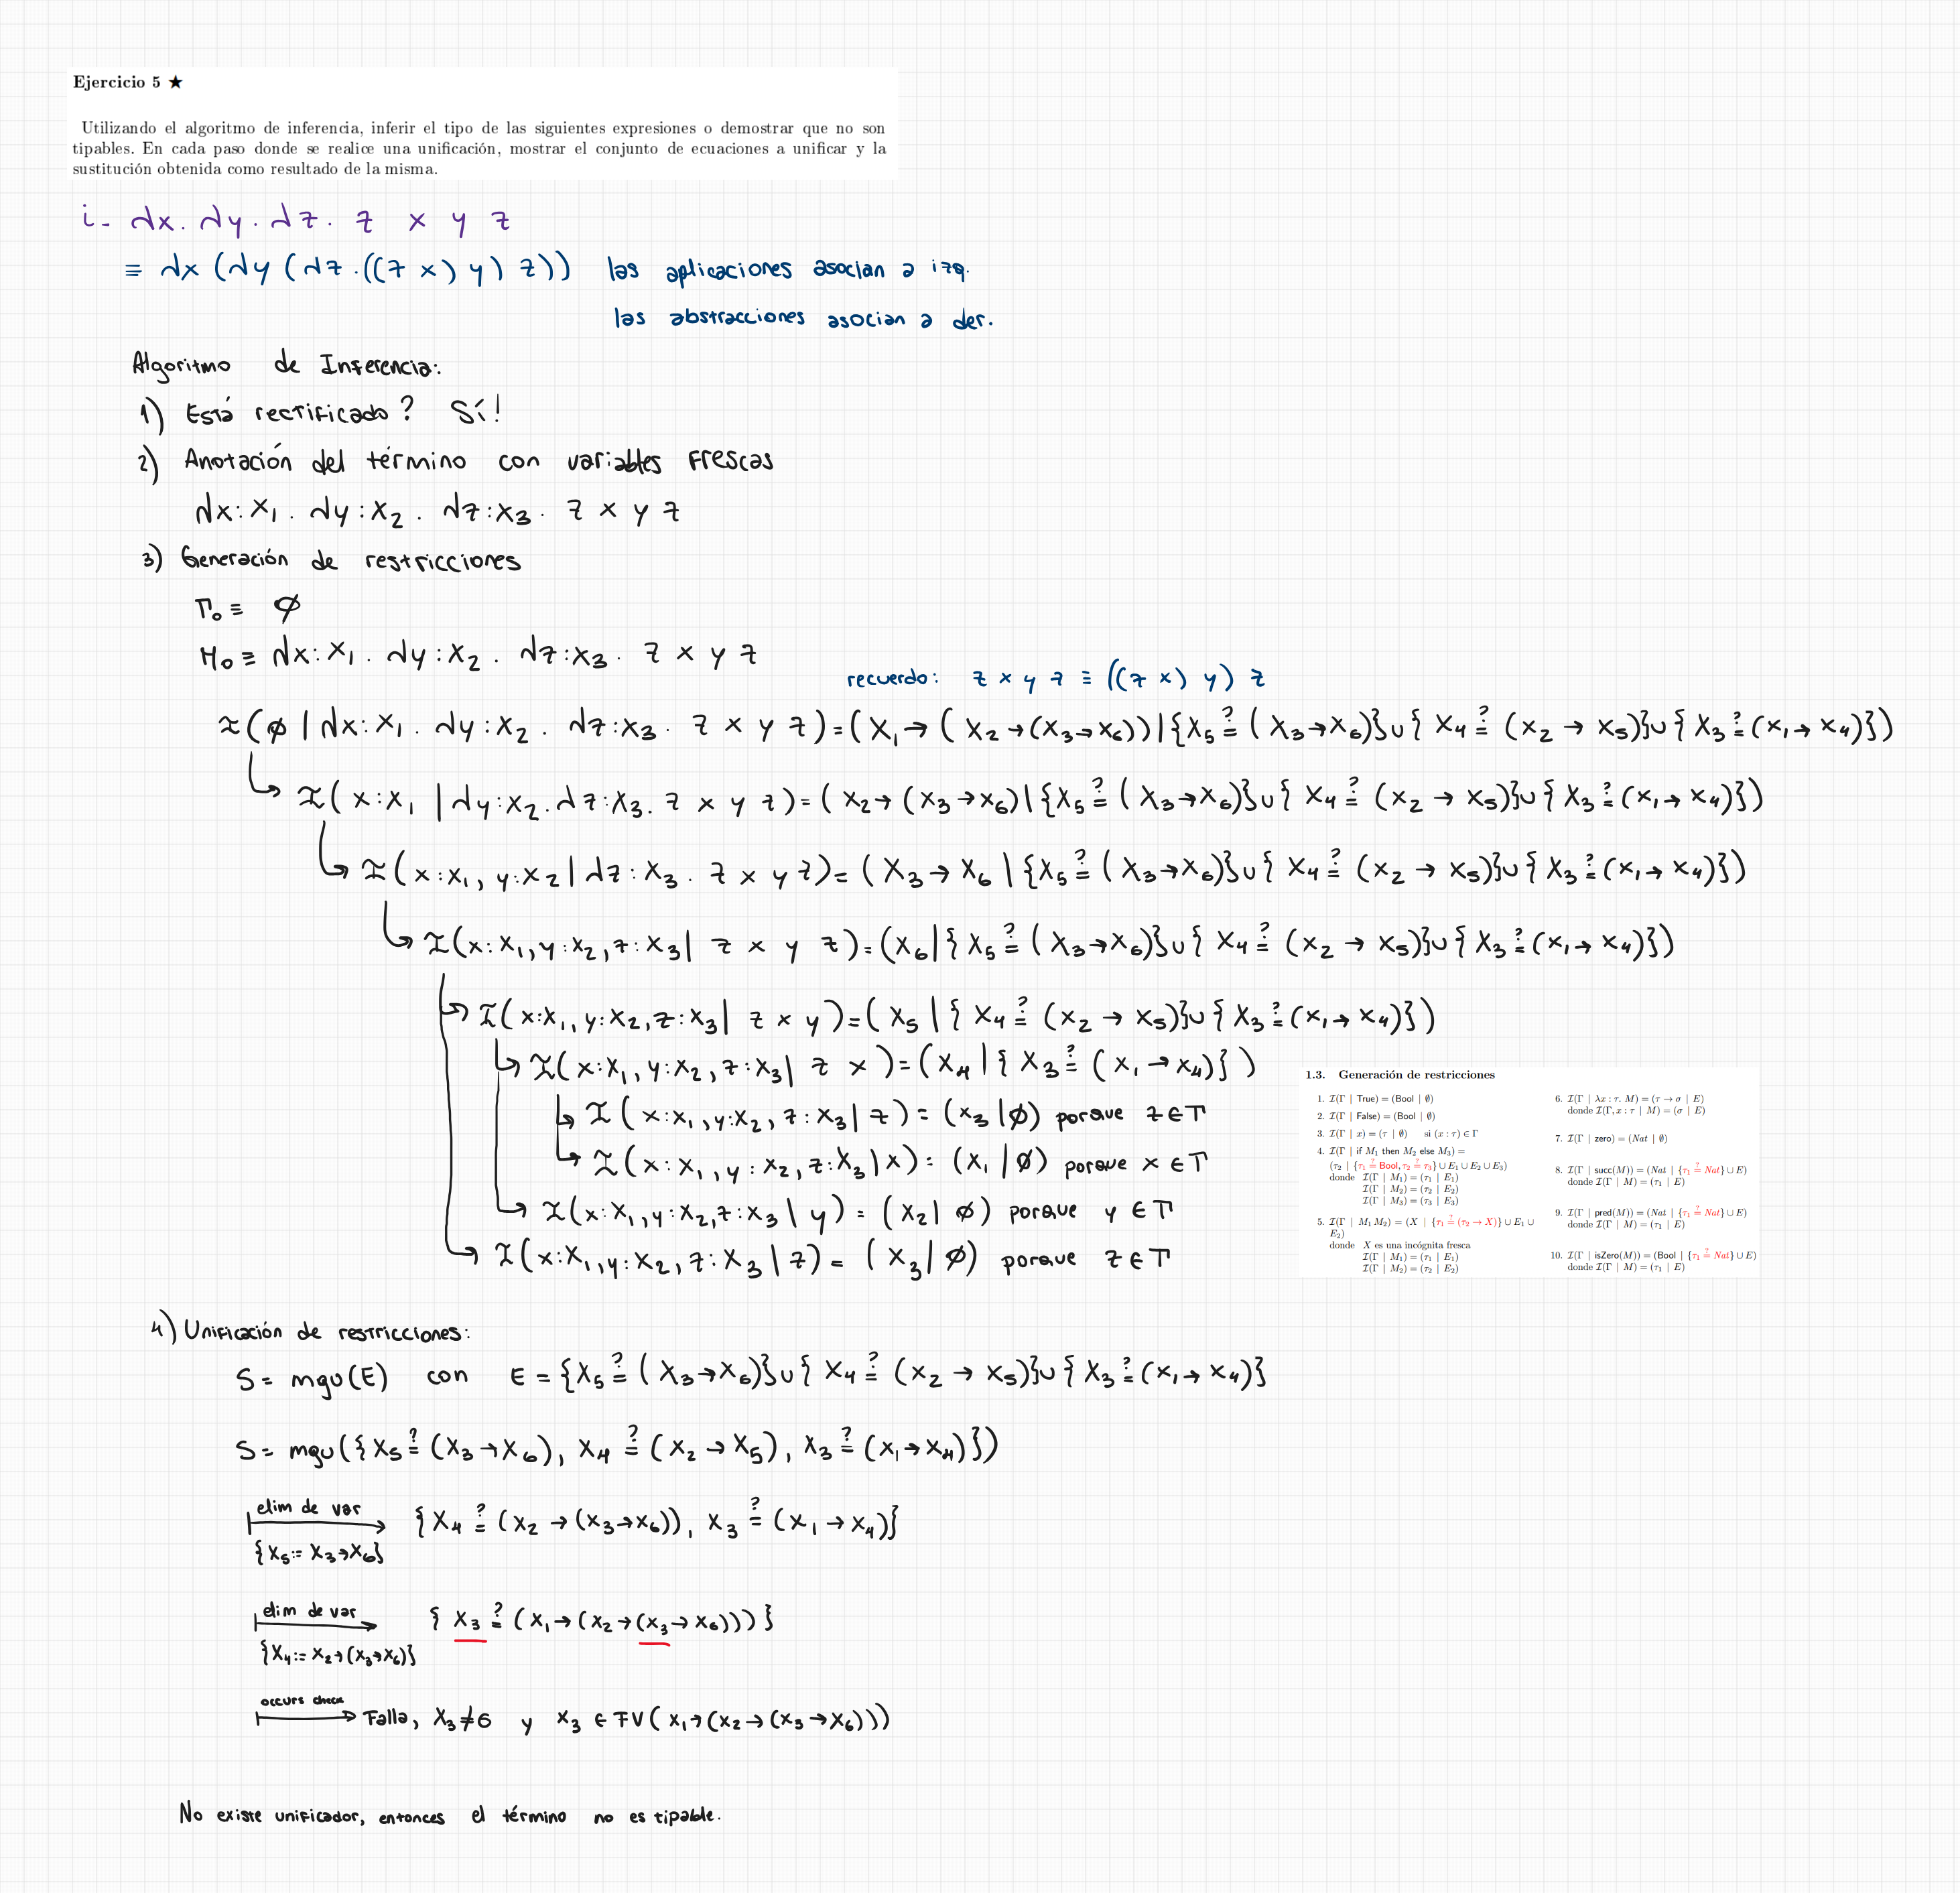 Ejercicio 5 ★
Utilizando el algoritmo de inferencia, inferir el tipo de las siguientes expresiones o demostrar que no son
tipables. En cada paso donde se realice una unificación, mostrar el conjunto de ecuaciones a unificar y la
sustitución obtenida como resultado de la misma.
i- λx. λy. λz. z x y z
≡ λx (λy (λz.((z x) y) z)) las aplicaciones asocian a izq.
las abstracciones asocian a der.
Algoritmo de Inferencia:
1) Está rectificado? Sí!
2) Anotación del término con variables frescas
λx:X₁. λy:X₂. λz:X₃. z x y z
3) Generación de restricciones
Γ₀ ≡ ∅
M₀ ≡ λx:X₁. λy:X₂. λz:X₃. z x y z
recuerdo: z x y z ≡ ((z x) y) z
I(∅ | λx:X₁. λy:X₂. λz:X₃. z x y z) = (X₁→(X₂→(X₃→X₆)) | {X₅ ≟ (X₃→X₆)}∪{X₄ ≟ (X₂→X₅)}∪{X₃ ≟ (X₁→X₄)})
↳ I(x:X₁ | λy:X₂.λz:X₃. z x y z) = (X₂→(X₃→X₆) | {X₅ ≟ (X₃→X₆)}∪{X₄ ≟ (X₂→X₅)}∪{X₃ ≟ (X₁→X₄)})
↳ I(x:X₁, y:X₂ | λz:X₃. z x y z) = (X₃→X₆ | {X₅ ≟ (X₃→X₆)}∪{X₄ ≟ (X₂→X₅)}∪{X₃ ≟ (X₁→X₄)})
↳ I(x:X₁, y:X₂, z:X₃ | z x y z) = (X₆ | {X₅ ≟ (X₃→X₆)}∪{X₄ ≟ (X₂→X₅)}∪{X₃ ≟ (X₁→X₄)})
↳ I(x:X₁, y:X₂, z:X₃ | z x y) = (X₅ | {X₄ ≟ (X₂→X₅)}∪{X₃ ≟ (X₁→X₄)})
↳ I(x:X₁, y:X₂, z:X₃ | z x) = (X₄ | {X₃ ≟ (X₁→X₄)})
↳ I(x:X₁, y:X₂, z:X₃ | z) = (X₃ | ∅) porque z ∈ Γ
↳ I(x:X₁, y:X₂, z:X₃ | x) = (X₁ | ∅) porque x ∈ Γ
↳ I(x:X₁, y:X₂, z:X₃ | y) = (X₂ | ∅) porque y ∈ Γ
↳ I(x:X₁, y:X₂, z:X₃ | z) = (X₃ | ∅) porque z ∈ Γ
1.3. Generación de restricciones
1. I(Γ | True) = (Bool | ∅)
2. I(Γ | False) = (Bool | ∅)
3. I(Γ | x) = (τ | ∅) si (x : τ) ∈ Γ
4. I(Γ | if M₁ then M₂ else M₃) =
(τ₂ | {τ₁ ≟ Bool, τ₂ ≟ τ₃} ∪ E₁ ∪ E₂ ∪ E₃)
donde I(Γ | M₁) = (τ₁ | E₁)
I(Γ | M₂) = (τ₂ | E₂)
I(Γ | M₃) = (τ₃ | E₃)
5. I(Γ | M₁ M₂) = (X | {τ₁ ≟ (τ₂ → X)} ∪ E₁ ∪
E₂)
donde X es una incógnita fresca
I(Γ | M₁) = (τ₁ | E₁)
I(Γ | M₂) = (τ₂ | E₂)
6. I(Γ | λx : τ. M) = (τ → σ | E)
donde I(Γ, x : τ | M) = (σ | E)
7. I(Γ | zero) = (Nat | ∅)
8. I(Γ | succ(M)) = (Nat | {τ₁ ≟ Nat} ∪ E)
donde I(Γ | M) = (τ₁ | E)
9. I(Γ | pred(M)) = (Nat | {τ₁ ≟ Nat} ∪ E)
donde I(Γ | M) = (τ₁ | E)
10. I(Γ | isZero(M)) = (Bool | {τ₁ ≟ Nat} ∪ E)
donde I(Γ | M) = (τ₁ | E)
4) Unificación de restricciones:
S = mgu(E) con E = {X₅ ≟ (X₃→X₆)}∪{X₄ ≟ (X₂→X₅)}∪{X₃ ≟ (X₁→X₄)}
S = mgu({X₅ ≟ (X₃→X₆), X₄ ≟ (X₂→X₅), X₃ ≟ (X₁→X₄)})
elim de var
{X₄ ≟ (X₂→(X₃→X₆)), X₃ ≟ (X₁→X₄)}
{X₅:= X₃→X₆}
elim de var
{X₃ ≟ (X₁→(X₂→(X₃→X₆)))}
{X₄:= X₂→(X₃→X₆)}
occurs check
Falla, X₃≠6 y X₃ ∈ FV(X₁→(X₂→(X₃→X₆)))
No existe unificador, entonces el término no es tipable.